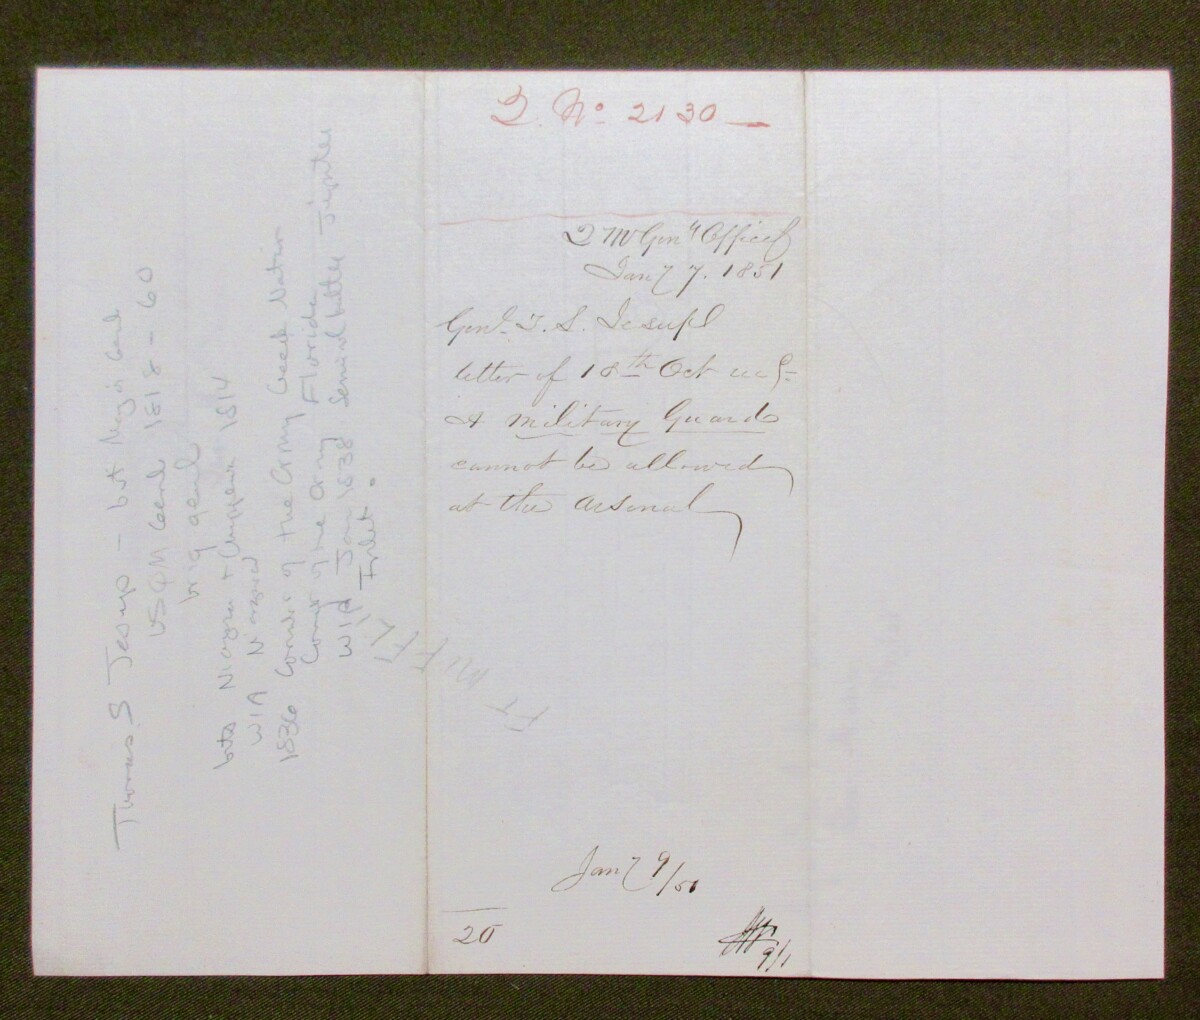 Thomas S Jesup - bvt Major Genl
USQM Genl 1818 - 60
brig genl
bvts Niagra + Chippewa 1814
WIA Niagra
1836 Comdr of the Army Creek Nation
Comdr of the Army Florida
WIA Jan 1838 Seminoles Jupiter
Inlet.
Q No 2130
Q M Genl's Office
Jany 7. 1851
Genl. T. S. Jesup
letter of 18th Oct recd
A military Guard
cannot be allowed
at the Arsenal
Jany 9/51
20
9/1